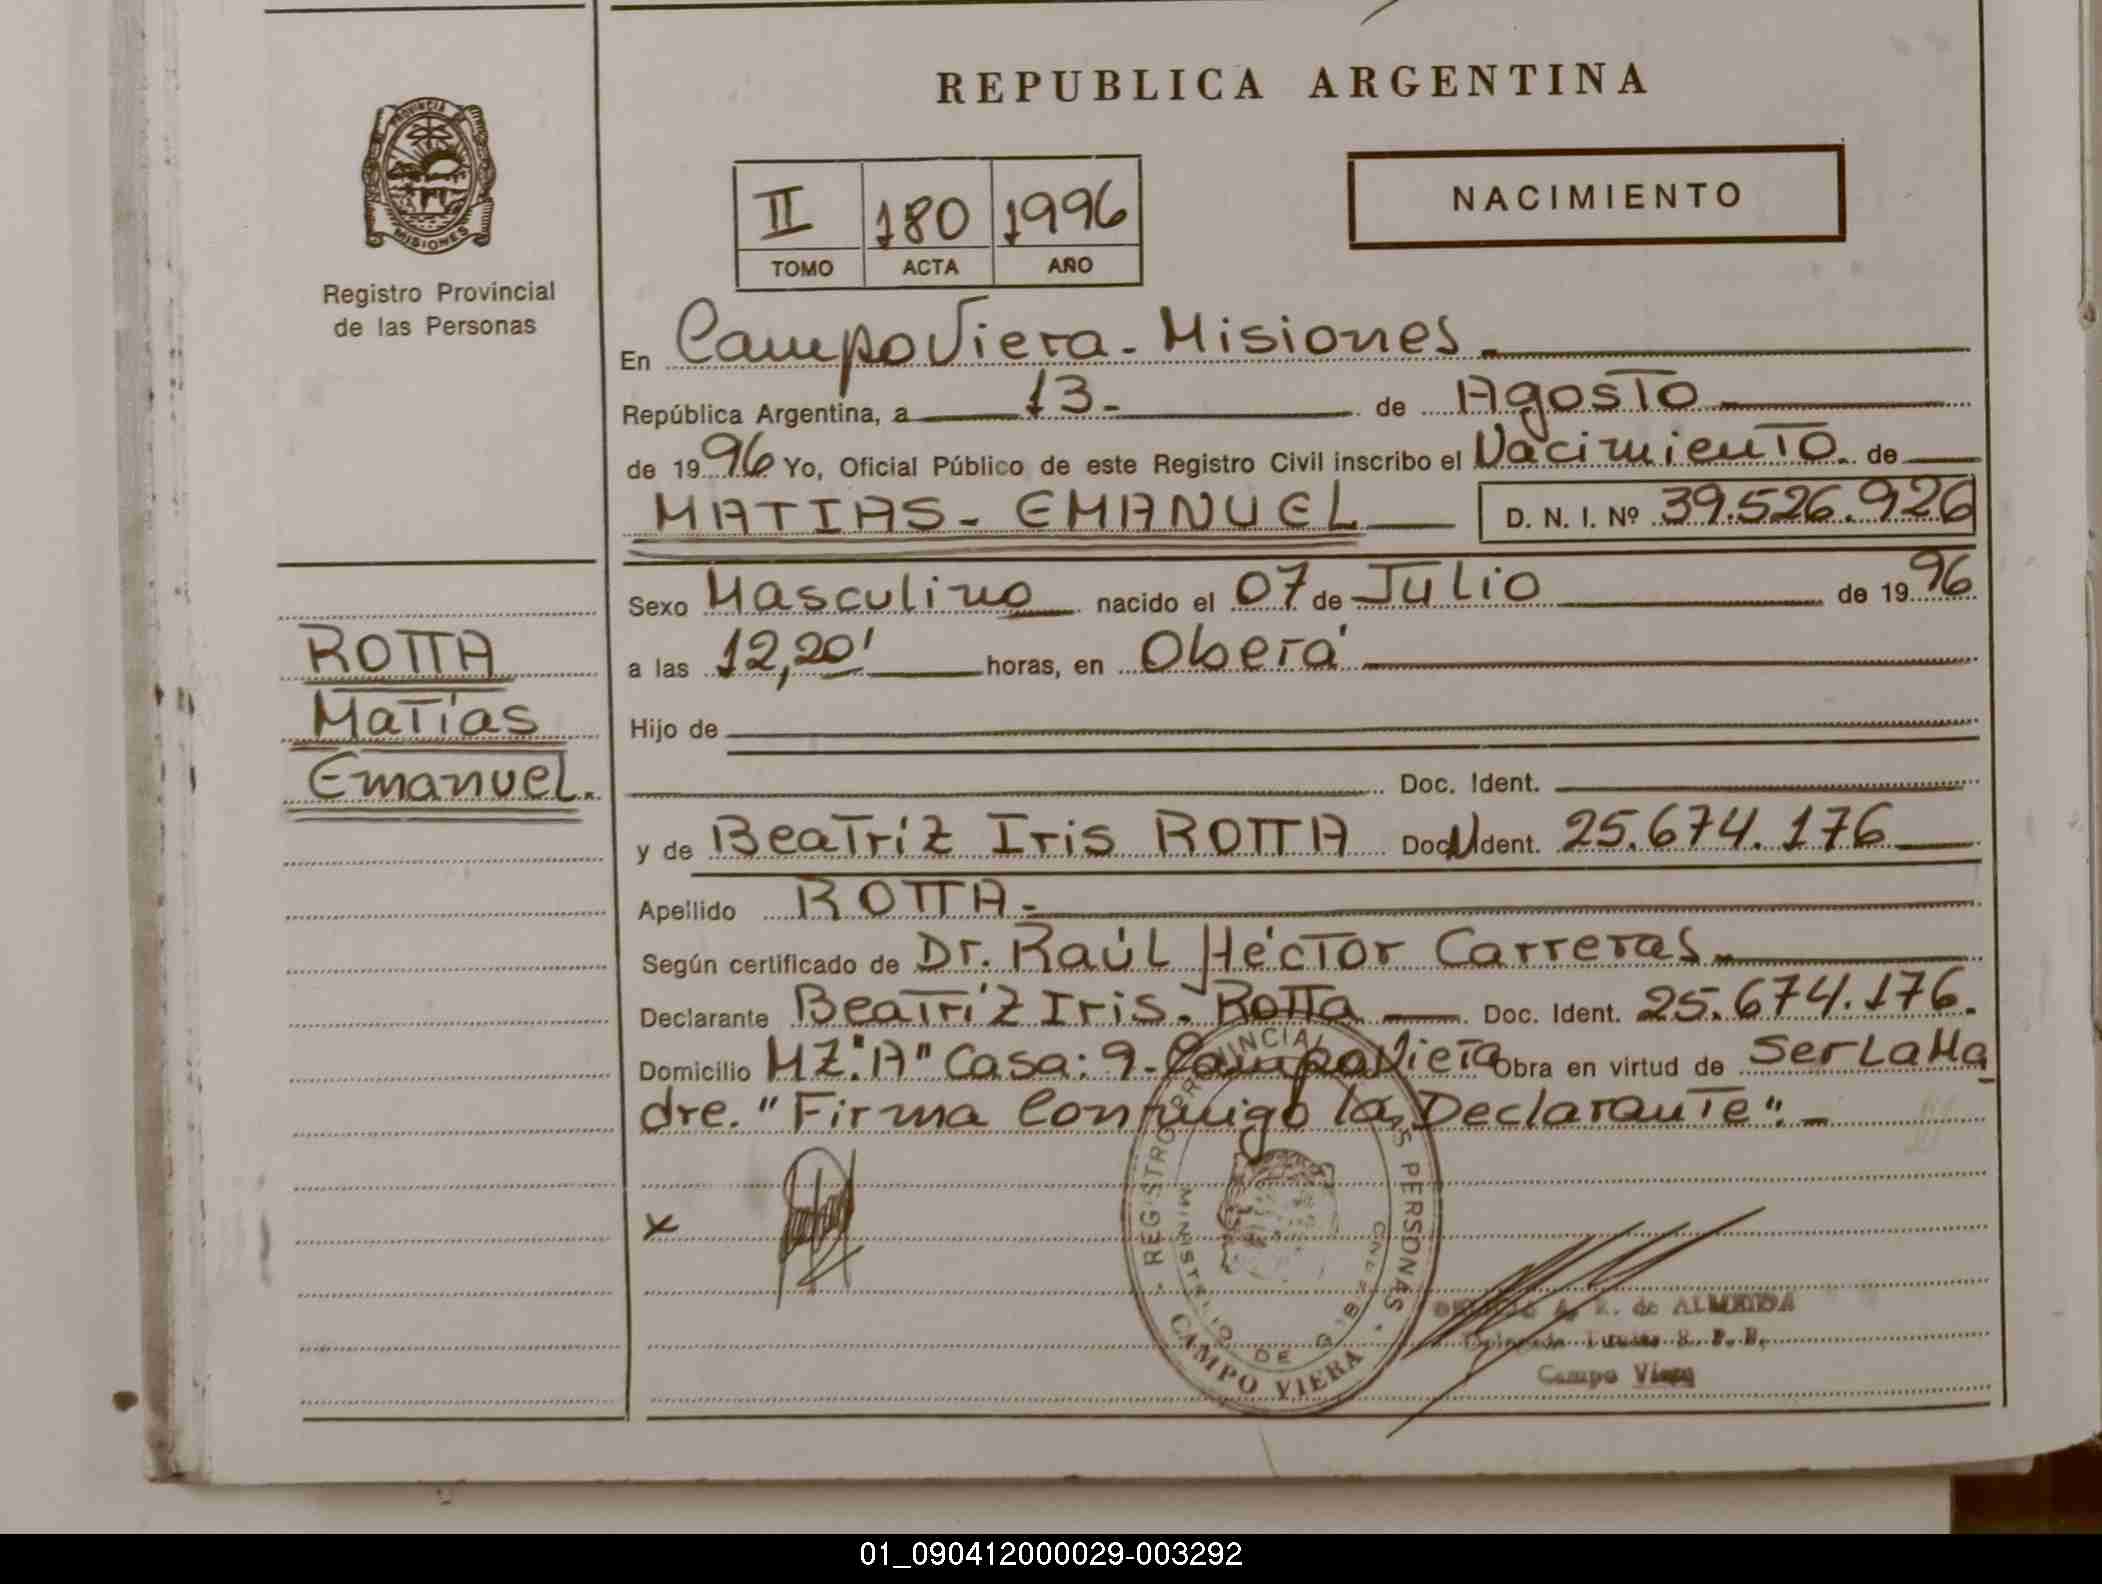 REPUBLICA ARGENTINA
PROVINCIA
MISIONES
Registro Provincial
de las Personas
NACIMIENTO
II 180 1996
TOMO ACTA AÑO
En Campo Viera - Misiones.
República Argentina, a 13- de Agosto
de 1996 Yo, Oficial Público de este Registro Civil inscribo el Nacimiento de
MATIAS - EMANUEL D. N. I. Nº 39.526.926
Sexo Masculino nacido el 07 de Julio de 1996
a las 12,20' horas, en Oberá
Hijo de
Doc. Ident.
y de Beatríz Iris ROTTA Doc. Ident. 25.674.176
Apellido ROTTA.-
Según certificado de Dr. Raúl Héctor Carreras.
Declarante Beatríz Iris. Rotta Doc. Ident. 25.674.176.
Domicilio MZ."A" Casa: 9- Campo Viera Obra en virtud de Ser La Ma
dre. "Firma Conmigo la Declarante".-
ROTTA
Matías
Emanuel.
x
REGISTRO PROVINCIAL PERSONAS
MINISTERIO DE
CAMPO VIERA
de ALMEIDA
Campo Viera
01_090412000029-003292